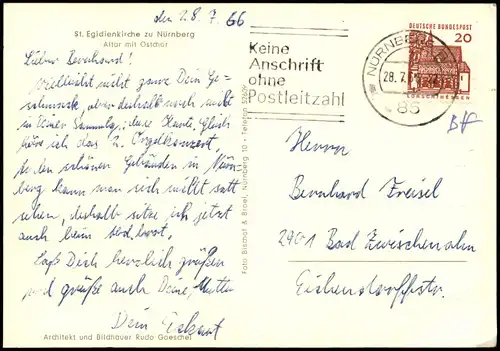 den 28.7.66
St. Egidienkirche zu Nürnberg
Altar mit Ostchor
Lieber Bernhard!
Vielleicht nicht ganz Dein Ge-
schmack, aber deshalb auch nicht
in Deiner Sammlg., diese Karte. Gleich
höre ich das 2. Orgelkonzert,
den schönen Gebäuden in Nürn-
berg kann man sich nicht satt
sehen, deshalb sitze ich jetzt
auch beim
Laß Dich herzlich grüßen
und grüße auch Deine Mutter
Dein Eckart
Architekt und Bildhauer Rudo Goeschel
Foto Bischof & Broel, Nürnberg 10 - Telefon 52609
Keine
Anschrift
ohne
Postleitzahl
NÜRNBERG
28.7.
85
DEUTSCHE BUNDESPOST
20
LORSCH/HESSEN
Herrn
Bernhard Freisel
2901 Bad Zwischenahn
Eichendorffstr.